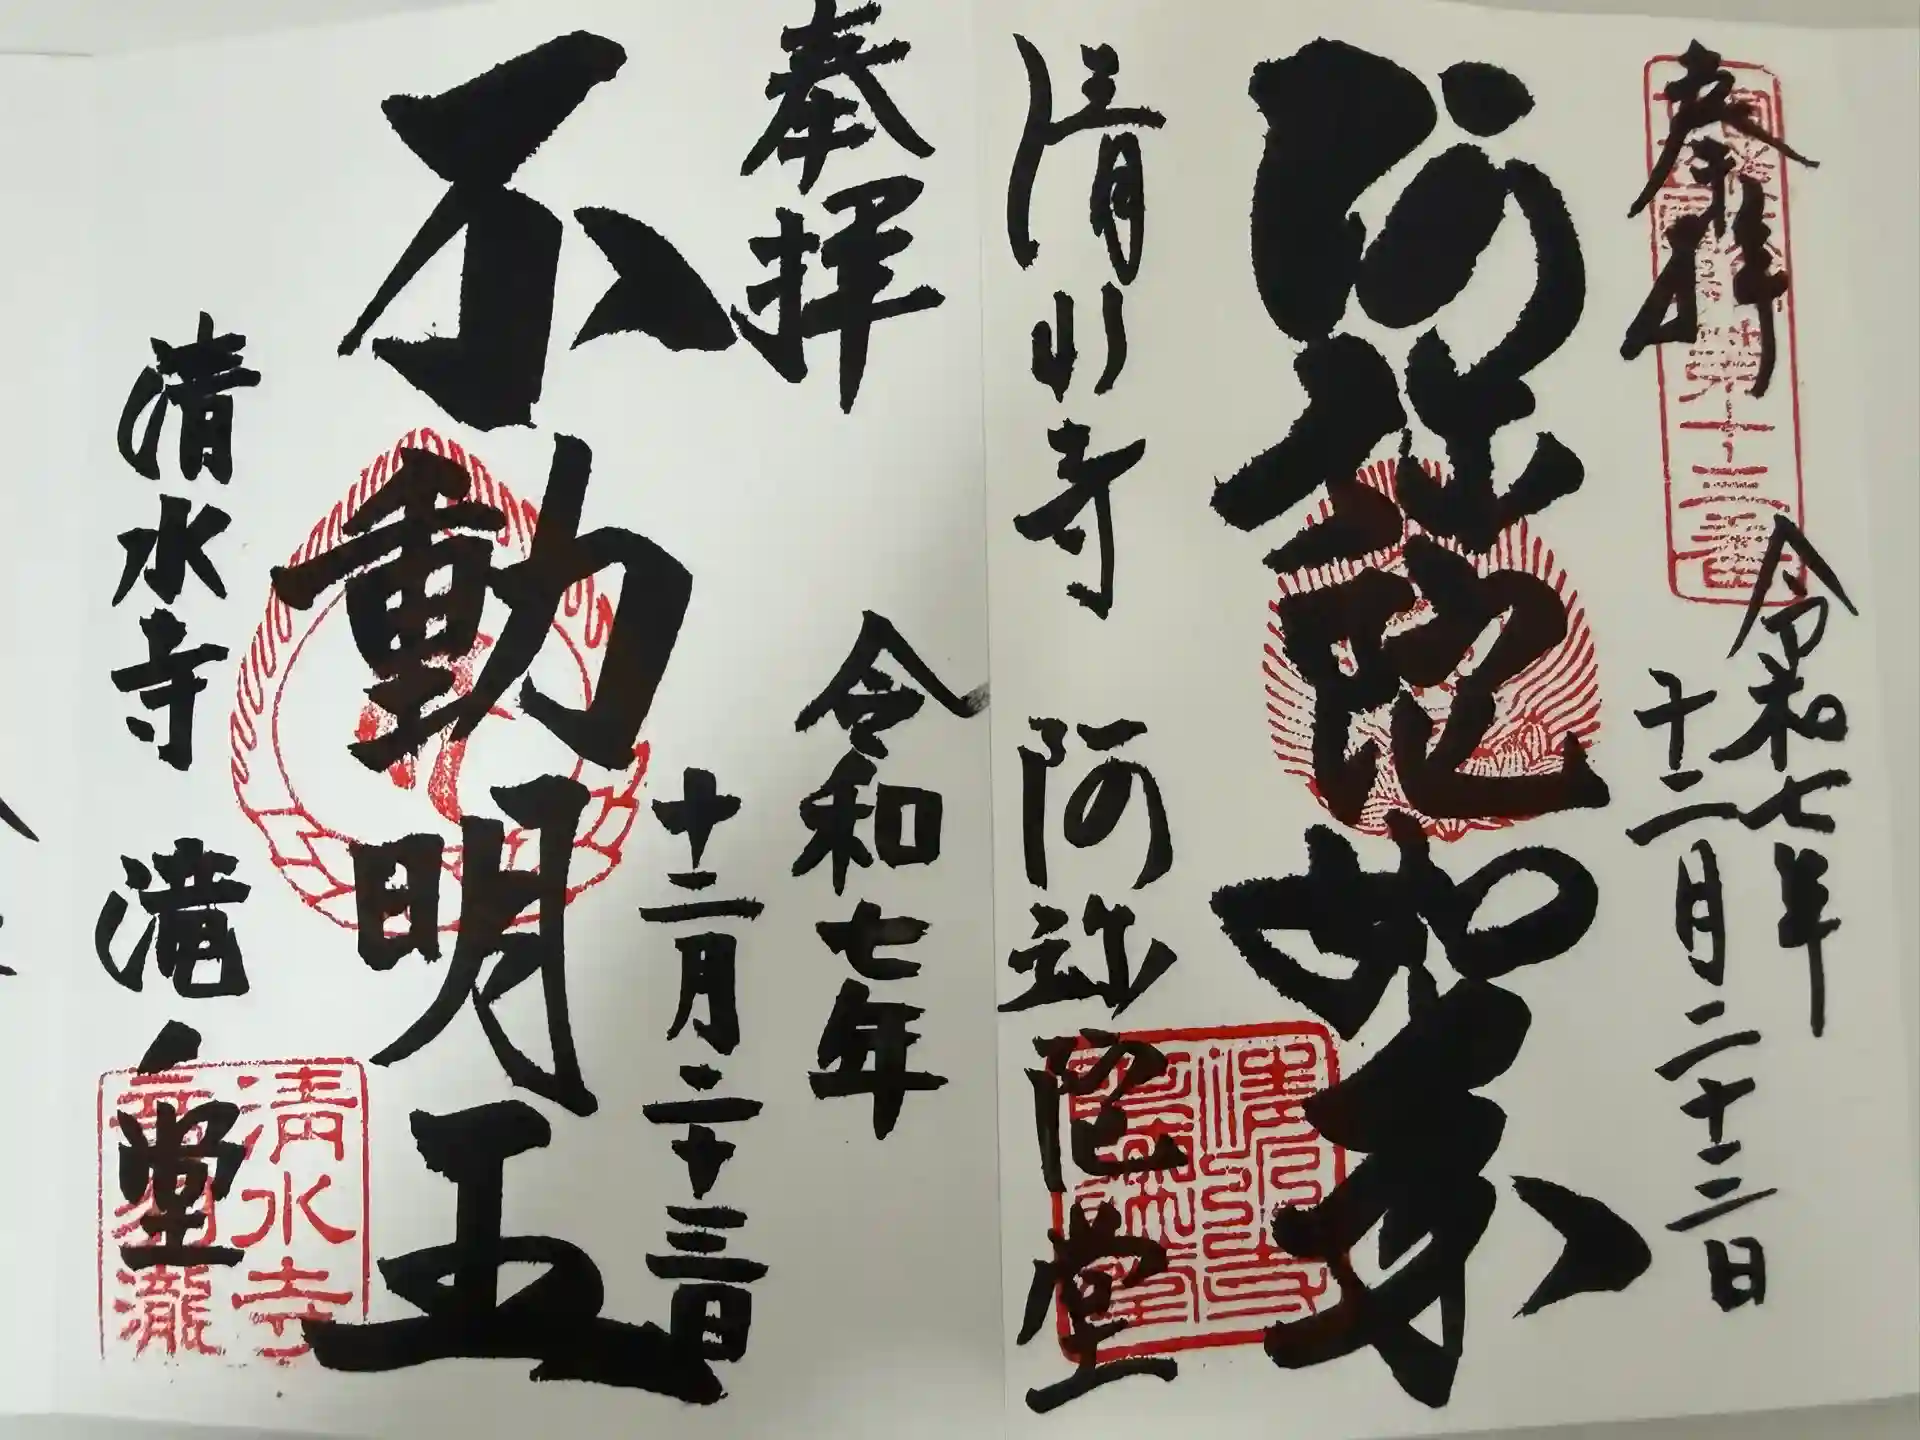 奉拝
令和七年
十二月二十三日
阿弥陀如来
清水寺 阿弥陀堂
奉拝
令和七年
十二月二十三日
不動明王
清水寺 滝之堂
清水寺
音羽瀧